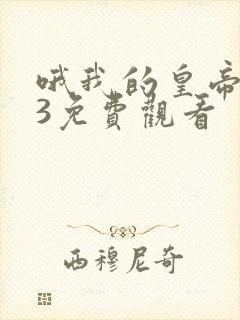 哦我的皇帝
3免費觀看
西穆尼奇